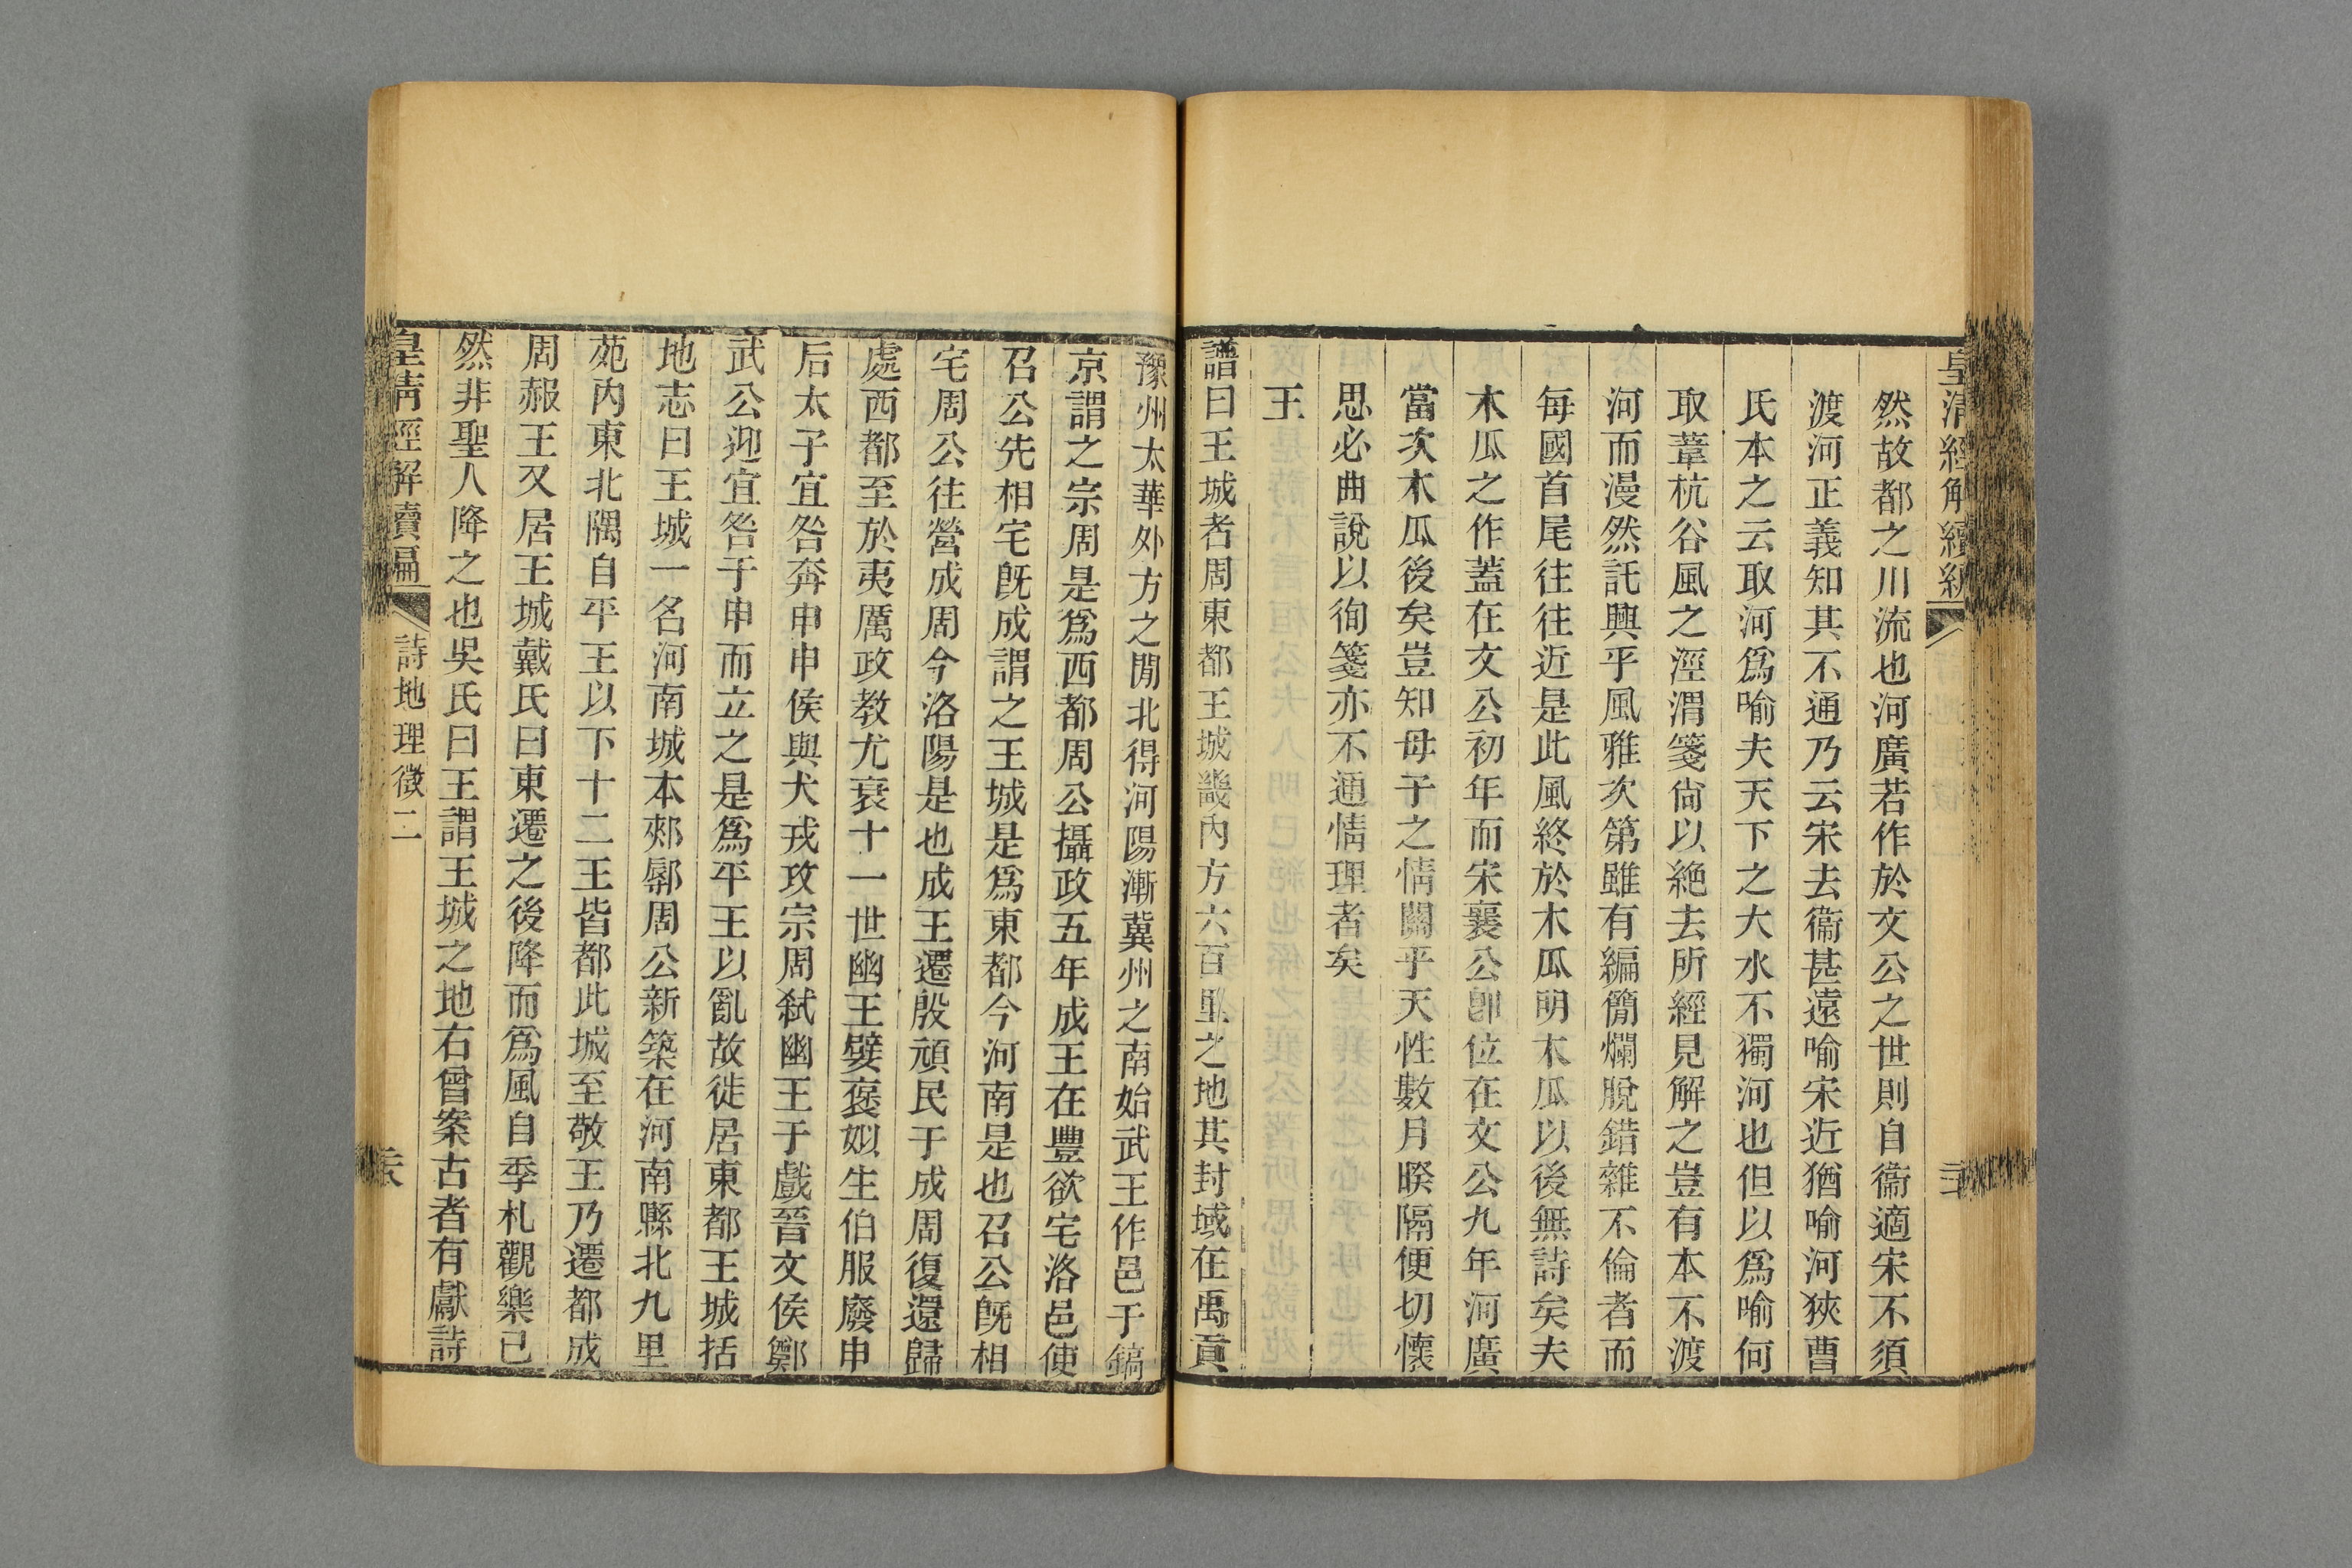 皇清經解續編
然故都之川流也河廣若作於文公之世則自衞適宋不須
渡河正義知其不通乃云宋去衞甚遠喻宋近猶喻河狹曹
氏本之云取河爲喻夫天下之大水不獨河也但以爲喻何
取葦杭谷風之涇渭箋尙以絕去所經見解之豈有本不渡
河而漫然託興乎風雅次第雖有編簡爛脫錯雜不倫者而
每國首尾往往近是此風終於木瓜明木瓜以後無詩矣夫
木瓜之作蓋在文公初年而宋襄公卽位在文公九年河廣
當次木瓜後矣豈知母子之情關乎天性數月暌隔便切懷
思必曲說以徇箋亦不通情理者矣
王
譜曰王城者周東都王城畿內方六百里之地其封域在禹貢
豫州太華外方之閒北得河陽漸冀州之南始武王作邑于鎬
京謂之宗周是爲西都周公攝政五年成王在豐欲宅洛邑使
召公先相宅旣成謂之王城是爲東都今河南是也召公旣相
宅周公往營成周今洛陽是也成王遷殷頑民于成周復還歸
處西都至於夷厲政教尤衰十一世幽王嬖褒姒生伯服廢申
后太子宜咎奔申申侯與犬戎攻宗周弑幽王于戲晉文侯鄭
武公迎宜咎于申而立之是爲平王以亂故徙居東都王城括
地志曰王城一名河南城本郟鄏周公新築在河南縣北九里
苑內東北隅自平王以下十二王皆都此城至敬王乃遷都成
周赧王又居王城戴氏曰東遷之後降而爲風自季札觀樂已
然非聖人降之也吳氏曰王謂王城之地右曾案古者有獻詩
皇清經解續編
詩地理徵二